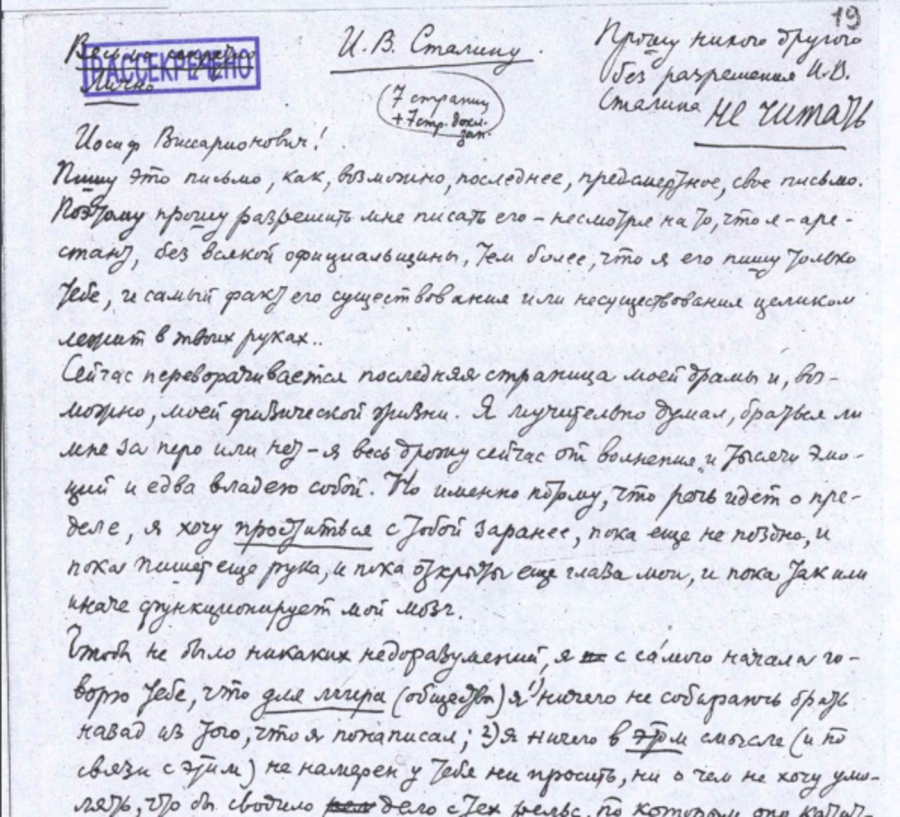 19
Весьма секретно
РАССЕКРЕЧЕНО
Лично
И. В. Сталину.
(7 страниц
+ 7 стр. докл.
зап.)
Прошу никого другого
без разрешения И.В.
Сталина НЕ ЧИТАТЬ
Иосиф Виссарионович!
Пишу это письмо, как, возможно, последнее, предсмертное, свое письмо.
Поэтому прошу разрешить мне писать его – несмотря на то, что я – аре-
стант, без всякой официальщины, тем более, что я его пишу только
тебе, и самый факт его существования или несуществования целиком
лежит в твоих руках..
Сейчас переворачивается последняя страница моей драмы и, воз-
можно, моей физической жизни. Я мучительно думал, браться ли
мне за перо или нет – я весь дрожу сейчас от волнения и тысячи эмо-
ций и едва владею собой. Но именно потому, что речь идет о пре-
деле, я хочу проститься с тобой заранее, пока еще не поздно, и
пока пишет еще рука, и пока открыты еще глаза мои, и пока так или
иначе функционирует мой мозг.
Чтобы не было никаких недоразумений, я с самого начала го-
ворю тебе, что для мира (общества) я 1) ничего не собираюсь брать
назад из того, что я понаписал; 2) я ничего в этом смысле (и по
связи с этим) не намерен у тебя ни просить, ни о чем не хочу умо-
лять, что бы сводило дело с тех рельс, по которым оно катит-